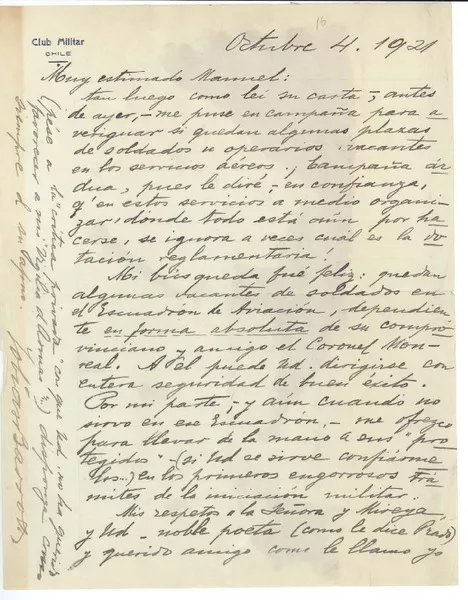 16
Club Militar
CHILE
Octubre 4. 1921
Muy estimado Manuel:
tan luego como leí su carta –, antes
de ayer, – me puse en campaña para a
veriguar si quedan algunas plazas
de soldados u operarios vacantes
en los servicios aéreos. ¡Campaña ár-
dua, pues le diré – en confianza,
q' en estos servicios a medio organi-
zar, donde todo está aún por ha-
cerse, se ignora a veces cuál es la do-
tación reglamentaria!
Mi búsqueda fué feliz: quedan
algunas vacantes de soldados en
el Escuadrón de Aviación, dependien-
te en forma absoluta de su compro-
vinciano y amigo el Coronel Mon-
real. A él puede Ud. dirigirse con
entera seguridad de buen éxito.
Por mi parte, y aún cuando no
sirvo en ese Escuadrón, – me ofrezco
para llevar de la mano a sus "pro-
tegidos" – (si Ud se sirve confiárme
los) en los primeros engorrosos trá-
mites de la iniciación militar.
Mis respetos a la Señora y Mireya,
y Ud – noble poeta (como le dice Prado)
y querido amigo como le llamo yo
(pése a la "crítica forzada" con que Ud. ha querido
favorecer a mi "Vigilia de Armas") disponga como
siempre de